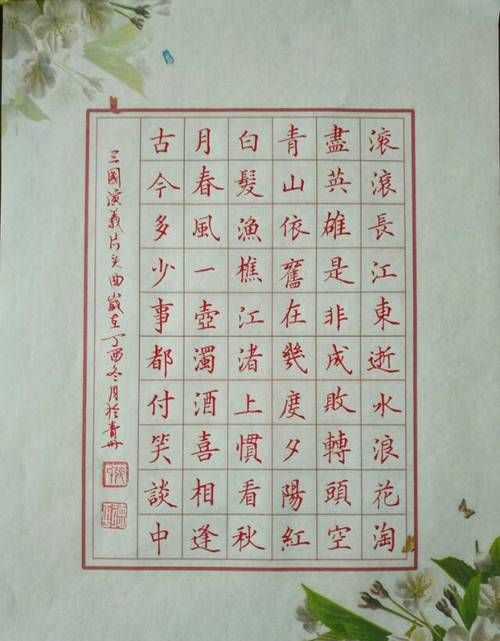 滾滾長江東逝水浪花淘
盡英雄是非成敗轉頭空
青山依舊在幾度夕陽紅
白髮漁樵江渚上慣看秋
月春風一壺濁酒喜相逢
古今多少事都付笑談中
三國演義片头曲歲在丁酉冬月於青